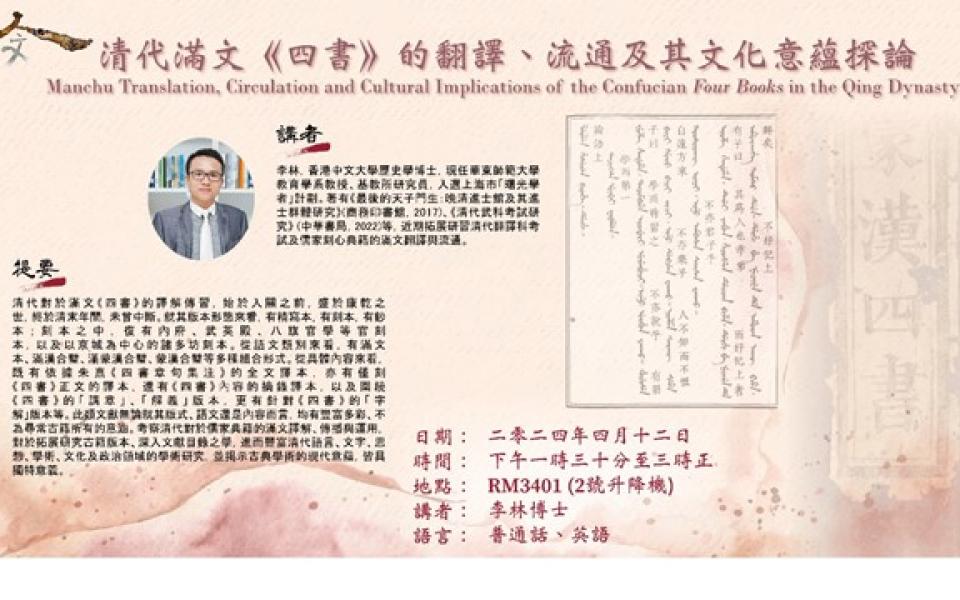 文
清代滿文《四書》的翻譯、流通及其文化意蘊探論
Manchu Translation, Circulation and Cultural Implications of the Confucian Four Books in the Qing Dynasty
講者
李林, 香港中文大學歷史學博士, 現任華東師範大學
教育學系教授、基教所研究員, 入選上海市「曙光學
者」計劃。著有《最後的天子門生: 晚清進士館及其進
士群體研究》(商務印書館, 2017)、《清代武科考試研
究》(中華書局, 2022)等, 近期拓展研習清代翻譯科考
試及儒家核心典籍的滿文翻譯與流通。
提要
清代對於滿文《四書》的譯解傳習, 始於入關之前, 盛於康乾之
世, 終於清末年間, 未曾中斷。就其版本形態來看, 有精寫本, 有刻本, 有鈔
本; 刻本之中, 復有內府、武英殿、八旗官學等官刻
本, 以及以京城為中心的諸多坊刻本。從語文類別來看, 有滿文
本、滿漢合璧、滿蒙漢合璧、蒙漢合璧等多種組合形式。從具體內容來看,
既有依據朱熹《四書章句集注》的全文譯本, 亦有僅刻
《四書》正文的譯本, 還有《四書》內容的摘錄譯本, 以及圍繞
《四書》的「講章」、「解義」版本, 更有針對《四書》的「字
解」版本等。此類文獻無論就其版式、語文還是內容而言, 均有豐富多彩、不
為尋常古籍所有的意涵。考察清代對於儒家典籍的滿文譯解、傳播與運用,
對於拓展研究古籍版本、深入文獻目錄之學, 進而豐富清代語言、文字、思
想、學術、文化及政治領域的學術研究, 並揭示古典學術的現代意蘊, 皆具
獨特意義。
論語上
學而第一
子曰 學而時習之 不亦說乎 有朋
自遠方來 不亦樂乎 人不知而不慍
不亦君子乎
有子曰 其為人也孝弟 而好犯上者
鮮矣 不好犯上
漢四書
日期： 二零二四年四月十二日
時間： 下午一時三十分至三時正
地點： RM3401 (2號升降機)
講者： 李林博士
語言： 普通話、英語